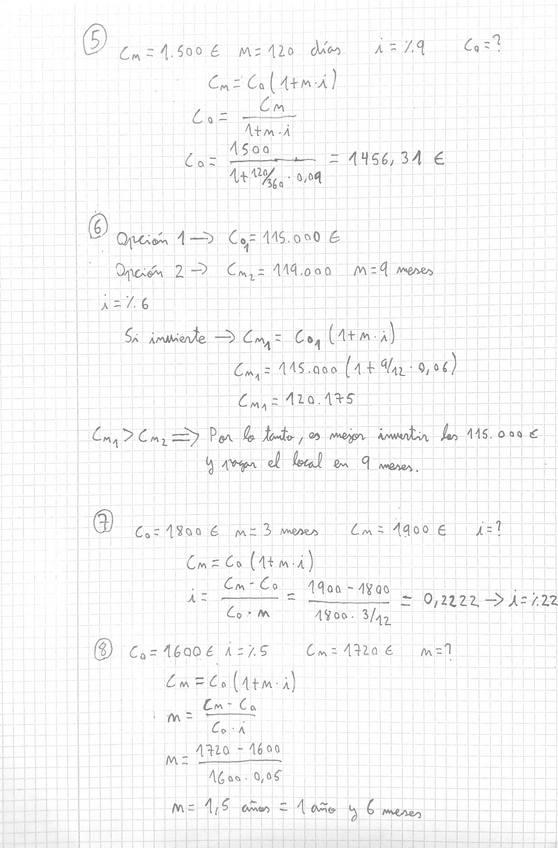 5 Cm = 1.500 € m = 120 días i = %9 C0 = ?
Cm = C0 (1+m·i)
C0 = Cm / 1+m·i
C0 = 1500 / 1+120/360 · 0,09 = 1456,31 €
6 Opción 1 → C01 = 115.000 €
Opción 2 → Cm2 = 119.000 m = 9 meses
i = %6
Si invierte → Cm1 = C01 (1+m·i)
Cm1 = 115.000 (1+9/12 · 0,06)
Cm1 = 120.175
Cm1 > Cm2 ⟹ Por lo tanto, es mejor invertir los 115.000 €
y pagar el local en 9 meses.
7 C0 = 1800 € m = 3 meses Cm = 1900 € i = ?
Cm = C0 (1+m·i)
i = Cm - C0 / C0 · m = 1900 - 1800 / 1800 · 3/12 = 0,2222 → i = %22
8 C0 = 1600 € i = %5 Cm = 1720 € m = ?
Cm = C0 (1+m·i)
m = Cm - C0 / C0 · i
m = 1720 - 1600 / 1600 · 0,05
m = 1,5 años = 1 año y 6 meses